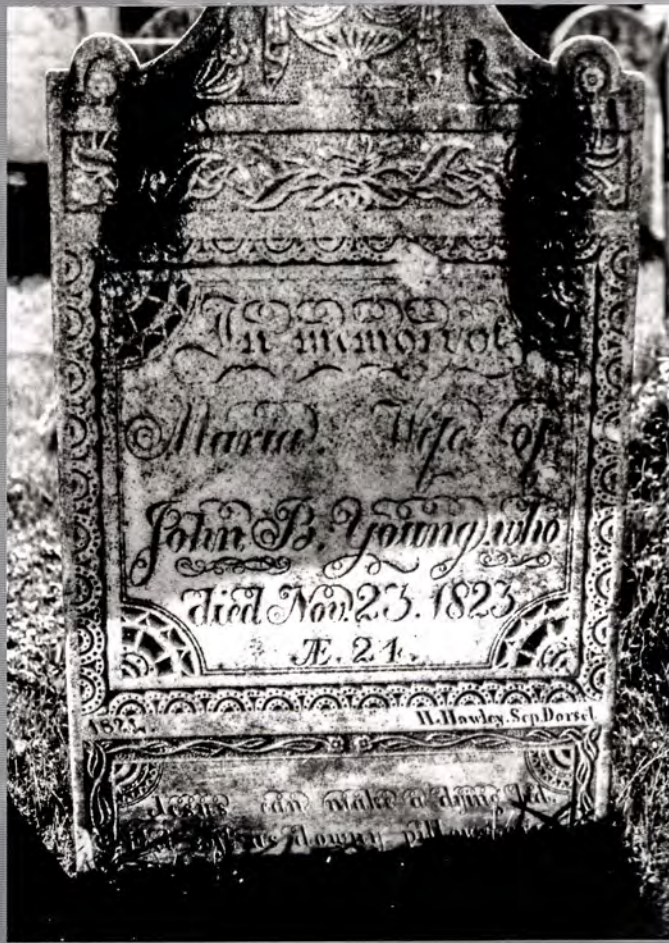 In memory of
Maria. Wife of
John B. Young, who
died Nov. 23. 1823
Æ. 24.
H. Howley. Scp. Dorset
Jesus can make a dying bed,
downy pillows